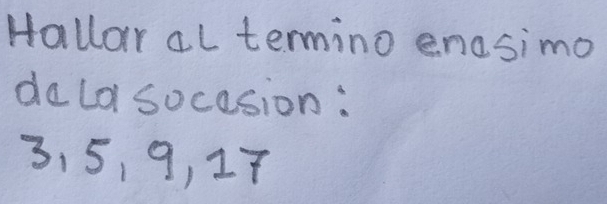 Hallar al termino enesimo
de la socesion:
3, 5, 9, 17